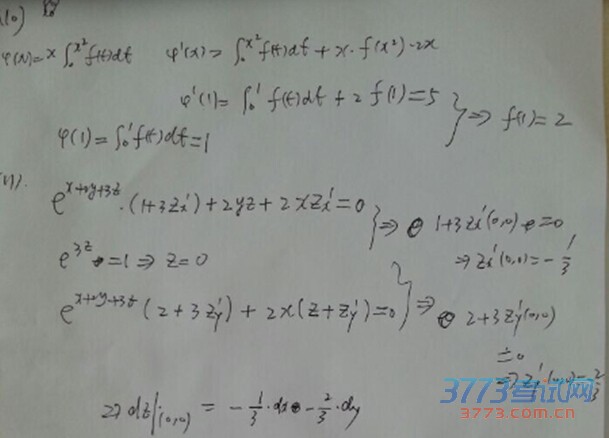 (10)
φ(x)=x∫₀^{x²}f(t)dt φ'(x)=∫₀^{x²}f(t)dt+x·f(x²)·2x
φ'(1)=∫₀¹f(t)dt+2f(1)=5
⇒f(1)=2
φ(1)=∫₀¹f(t)dt=1
(11).
e^{x+2y+3z}·(1+3zx')+2yz+2xzx'=0
⇒ 1+3zx'(0,0)=0
e^{3z}=1⇒z=0
⇒zx'(0,0)=-1/3
e^{x+2y+3z}(2+3zy')+2x(z+zy')=0
⇒ 2+3zy'(0,0)
=0
⇒zy'(0,0)=-2/3
⇒dz|(0,0)=-1/3·dx-2/3·dy
3773考试网
3773.com.cn